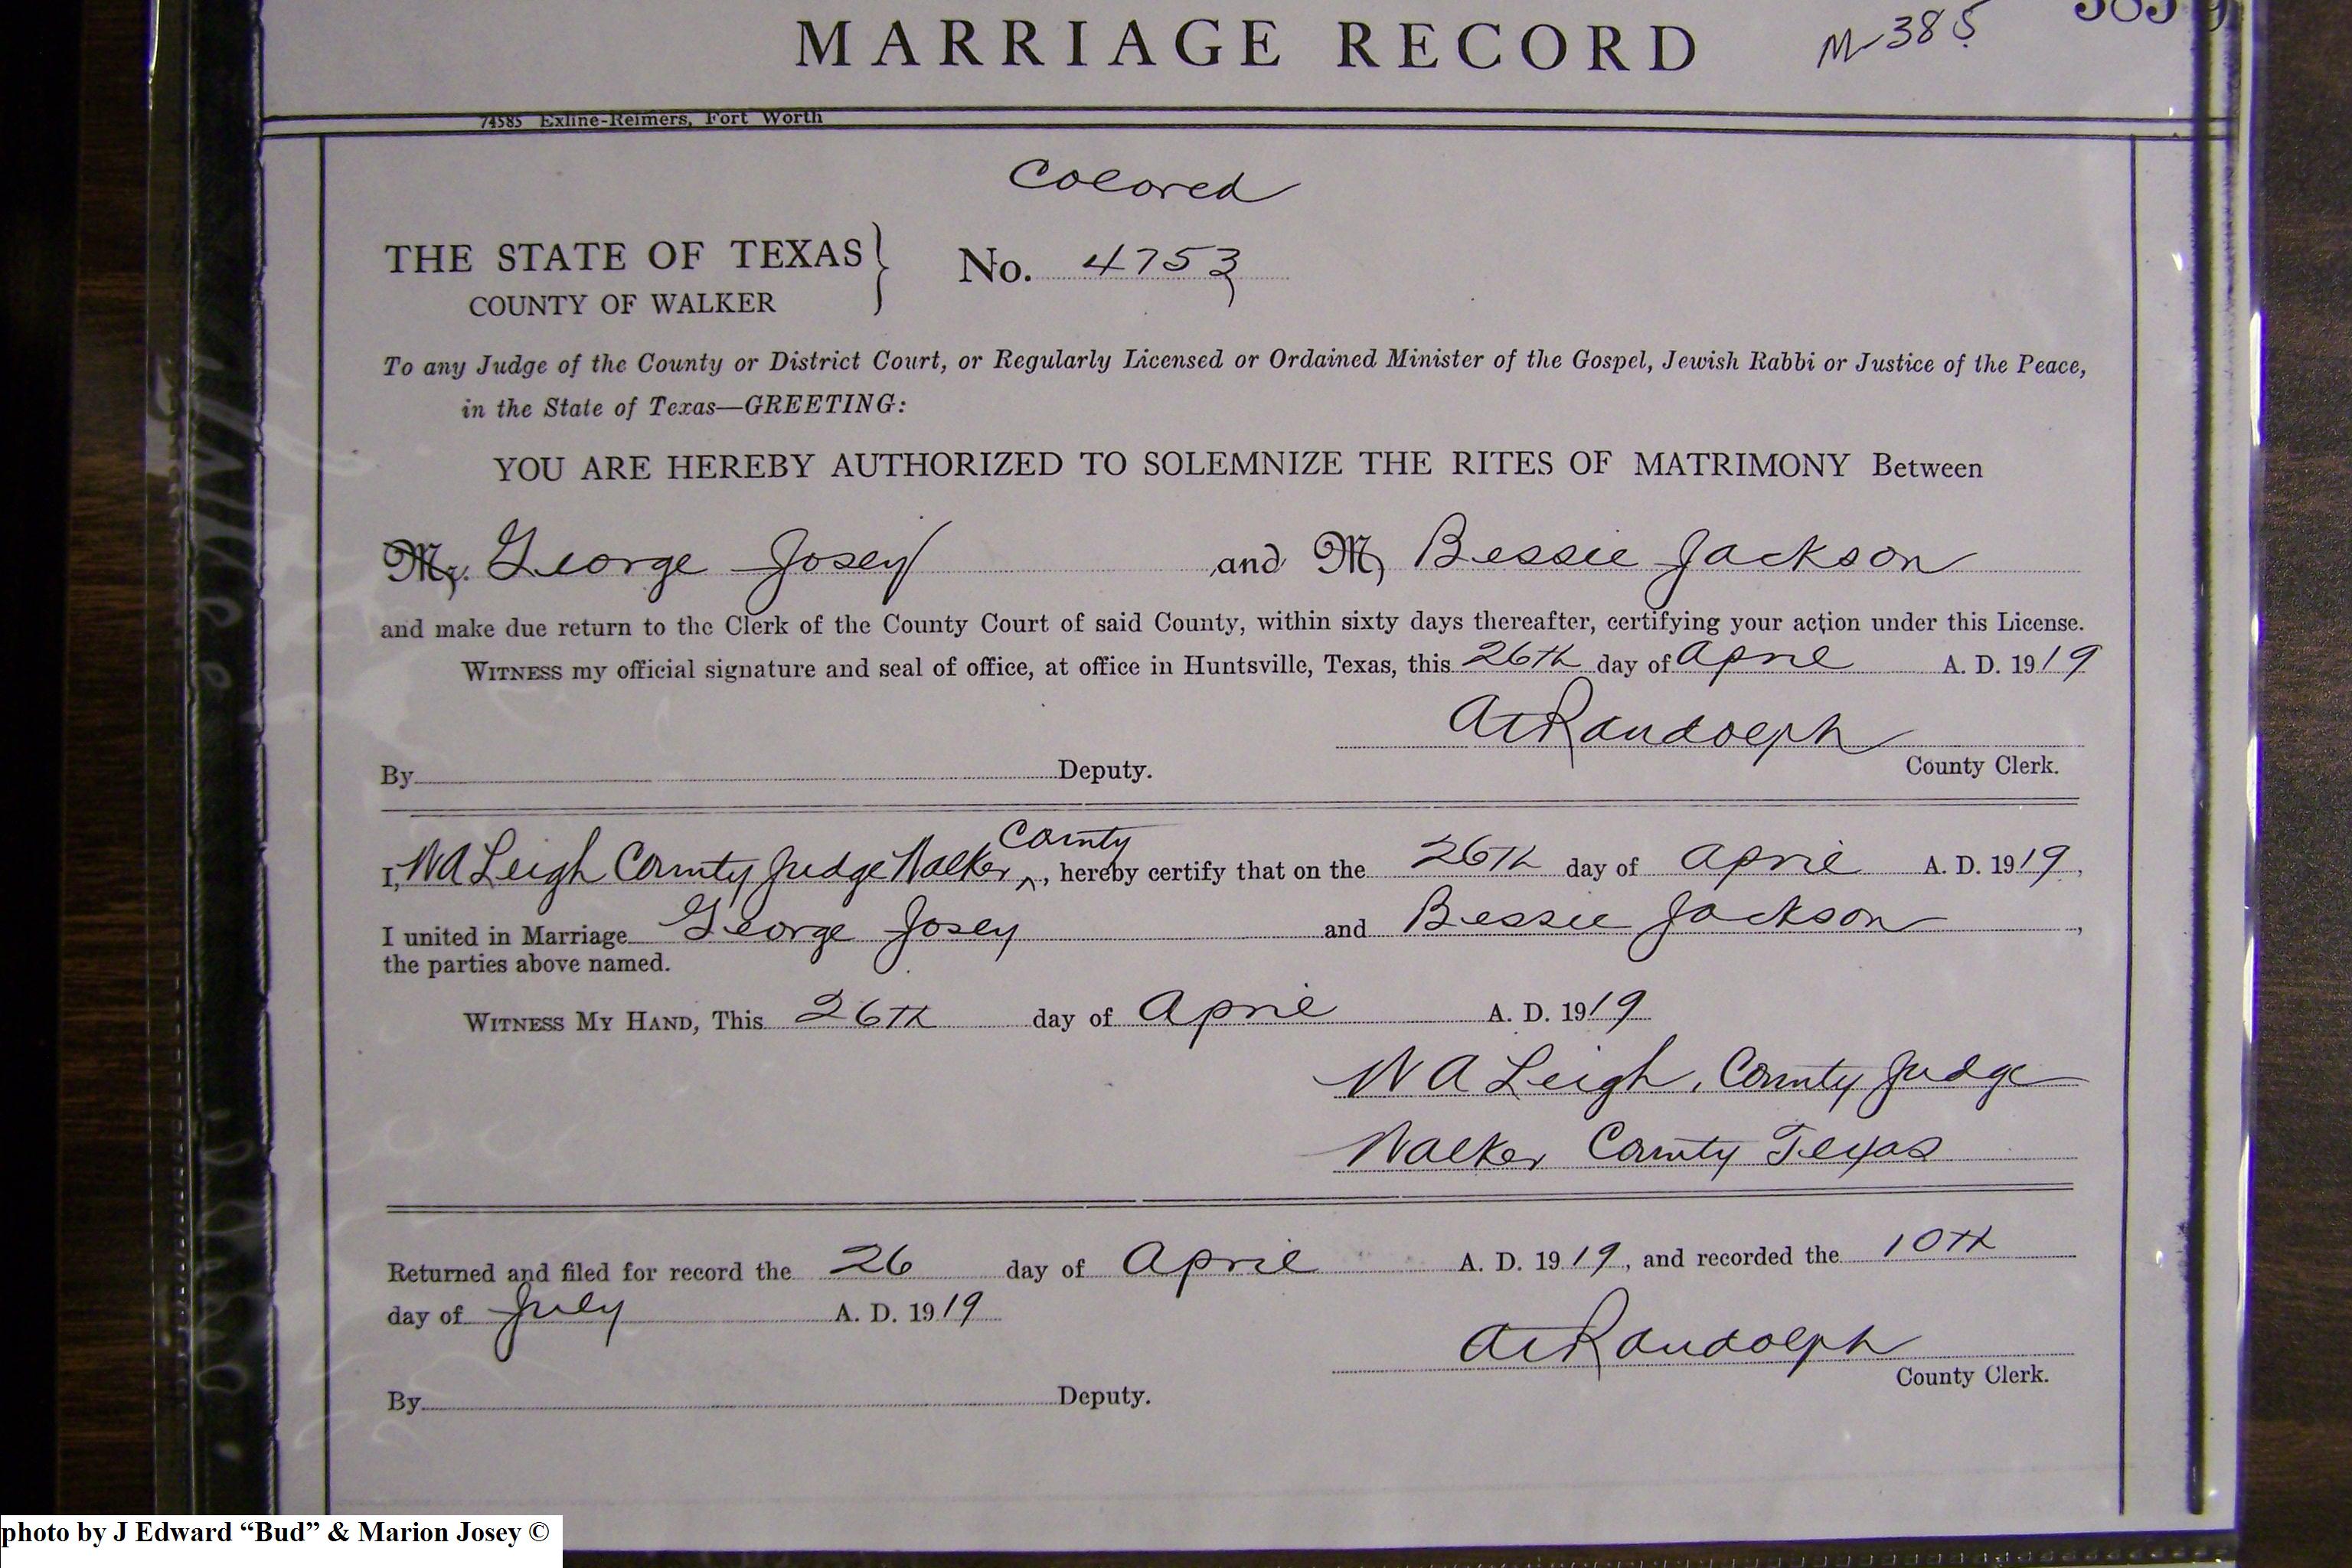 MARRIAGE RECORD
M-385
385
74585 Exline-Reimers, Fort Worth
Colored
THE STATE OF TEXAS } No. 4753
COUNTY OF WALKER
To any Judge of the County or District Court, or Regularly Licensed or Ordained Minister of the Gospel, Jewish Rabbi or Justice of the Peace,
in the State of Texas—GREETING:
YOU ARE HEREBY AUTHORIZED TO SOLEMNIZE THE RITES OF MATRIMONY Between
Mr. George Josey and M Bessie Jackson
and make due return to the Clerk of the County Court of said County, within sixty days thereafter, certifying your action under this License.
WITNESS my official signature and seal of office, at office in Huntsville, Texas, this 26th day of April A. D. 1919
At Randolph
By Deputy. County Clerk.
County
I, W A Leigh County Judge Walker ^, hereby certify that on the 26th day of April A. D. 1919,
I united in Marriage George Josey and Bessie Jackson,
the parties above named.
WITNESS MY HAND, This 26th day of April A. D. 1919
W A Leigh, County Judge
Walker County Texas
Returned and filed for record the 26 day of April A. D. 1919, and recorded the 10th
day of July A. D. 1919
At Randolph
County Clerk.
By Deputy.
photo by J Edward “Bud” & Marion Josey ©